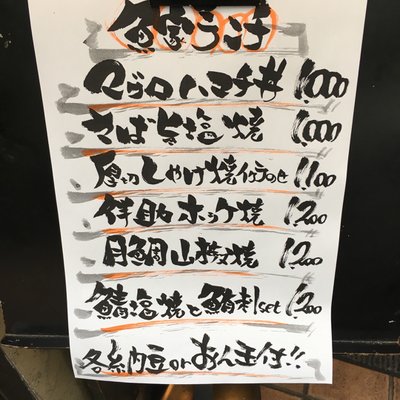 魚家ランチ
マグロハマチ丼 1,000
さば旨塩焼 1,000
厚切しゃけ焼 1,100
伴助ホッケ焼 1,200
目鯛山椒焼 1,200
鯖塩焼と鮪刺し set 1,200
各納豆orおん玉付!!